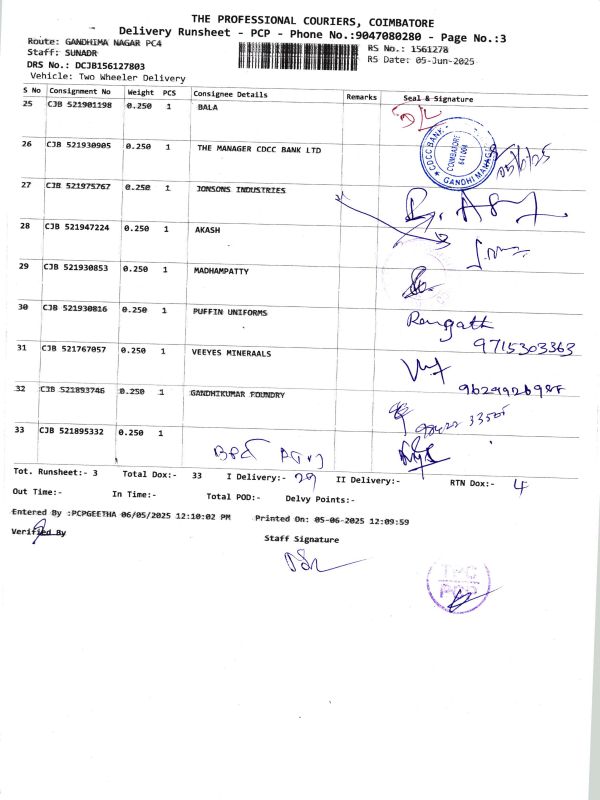 THE PROFESSIONAL COURIERS, COIMBATORE
Delivery Runsheet - PCP - Phone No.:9047080280 - Page No.:3
Route: GANDHIMA NAGAR PC4
RS No.: 1561278
Staff: SUNADR
RS Date: 05-Jun-2025
DRS No.: DCJB156127803
Vehicle: Two Wheeler Delivery
S No Consignment No Weight PCS Consignee Details Remarks Seal & Signature
25 CJB 521901198 0.250 1 BALA D/L
26 CJB 521930905 0.250 1 THE MANAGER CDCC BANK LTD
CDCC BANK
COIMBATORE
641 004
27 CJB 521975767 0.250 1 JONSONS INDUSTRIES
28 CJB 521947224 0.250 1 AKASH
29 CJB 521930853 0.250 1 MADHAMPATTY
30 CJB 521930816 0.250 1 PUFFIN UNIFORMS
Rangath
9715303363
31 CJB 521767057 0.250 1 VEEYES MINERAALS
32 CJB 521893746 0.250 1 GANDHIKUMAR FOUNDRY
33 CJB 521895332 0.250 1
Tot. Runsheet:- 3 Total Dox:- 33 I Delivery:- 29 II Delivery:- RTN Dox:- 4
Out Time:- In Time:- Total POD:- Delvy Points:-
Entered By :PCPGEETHA 06/05/2025 12:10:02 PM Printed On: 05-06-2025 12:09:59
Verified By
Staff Signature